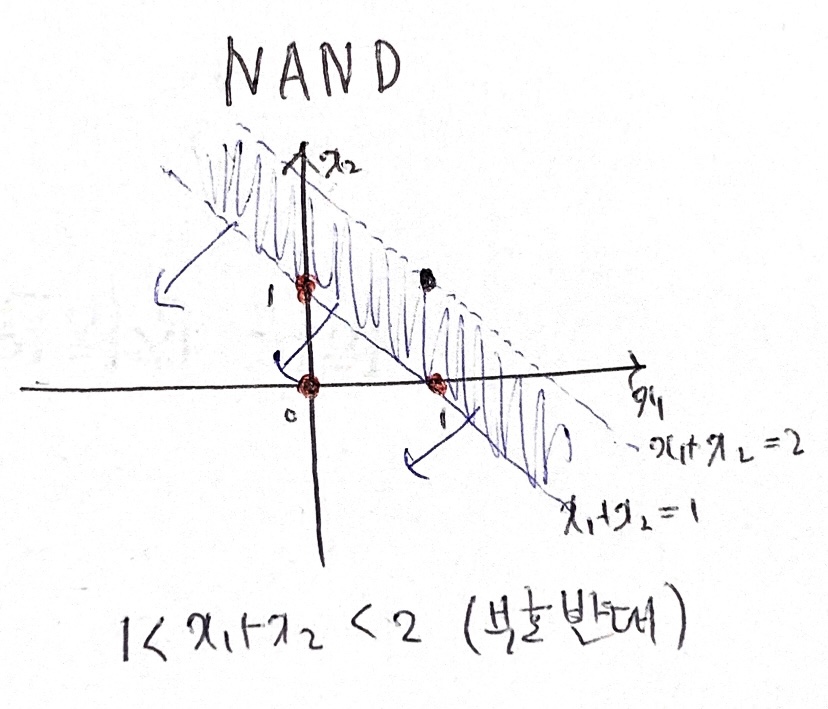 NAND
x₂
1
0
1
x₁
x₁+x₂=2
x₁+x₂=1
1< x₁+x₂ <2 (부호 반대)